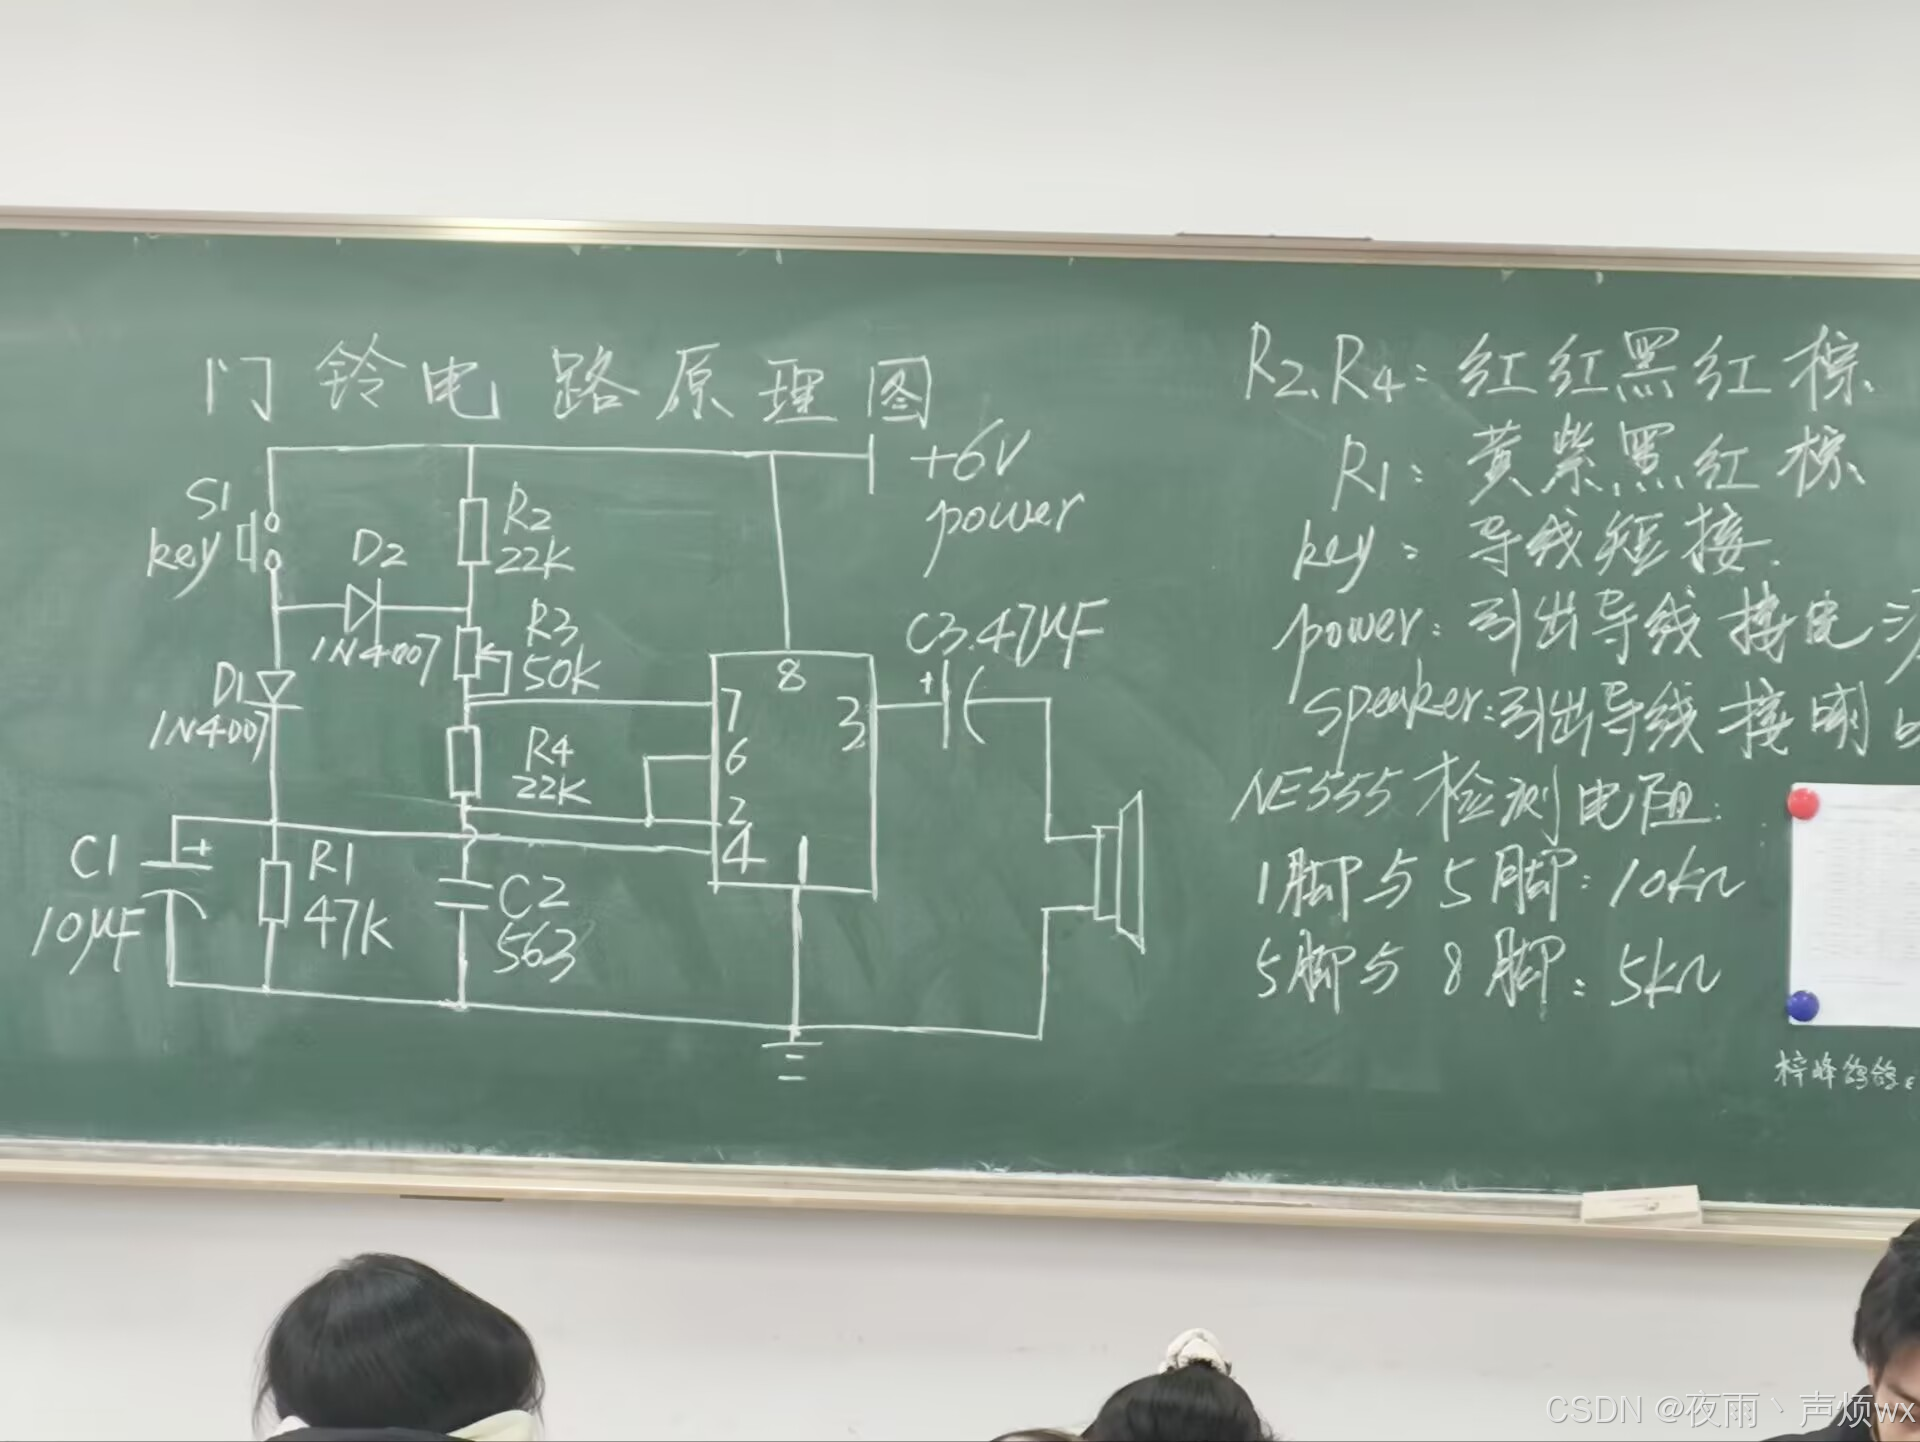 门铃电路原理图
+6V
power
S1
key
R2
22K
D2
1N4007
R3
50K
D1
1N4007
R4
22K
C3.47μF
+
8
7
6
2
4
3
1
C1
10μF
+
R1
47K
C2
563
R2、R4：红红黑红棕、
R1：黄紫黑红棕、
key：导线短接.
power：引出导线接电
speaker：引出导线接
NE555检测电阻：
1脚与5脚：10kΩ
5脚与8脚：5kΩ
梓峰鸽鸽
CSDN @夜雨丶声烦wx